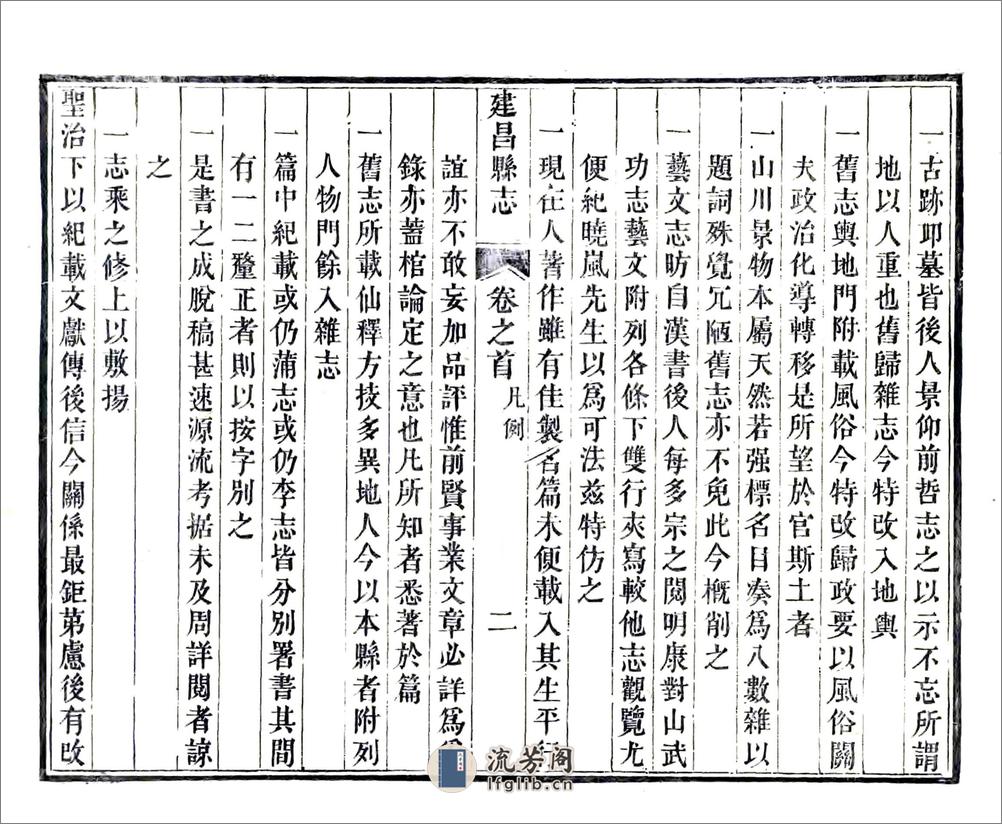 一古跡邱墓皆後人景仰前哲志之以示不忘所謂
地以人重也舊歸雜志今特改入地輿
一舊志輿地門附載風俗今特改歸政要以風俗關
夫政治化導轉移是所望於官斯土者
一山川景物本屬天然若强標名目湊爲八數雜以
題詞殊覺冗陋舊志亦不免此今槪削之
一藝文志昉自漢書後人每多宗之閱明康對山武
功志藝文附列各條下雙行夾寫較他志觀覽尤
便紀曉嵐先生以爲可法兹特仿之
一現在人著作雖有佳製名篇未便載入其生平行
建昌縣志
卷之首
凡例
二
誼亦不敢妄加品評惟前賢事業文章必詳爲
錄亦蓋棺論定之意也凡所知者悉著於篇
一舊志所載仙釋方技多異地人今以本縣者附列
人物門餘入雜志
一篇中紀載或仍蒲志或仍李志皆分別署書其間
有一二釐正者則以按字別之
一是書之成脫稿甚速源流考据未及周詳閱者諒
之
一志乘之修上以敷揚
聖治下以紀載文獻傳後信今關係最鉅第慮後有改
流芳阁
lfglib.cn